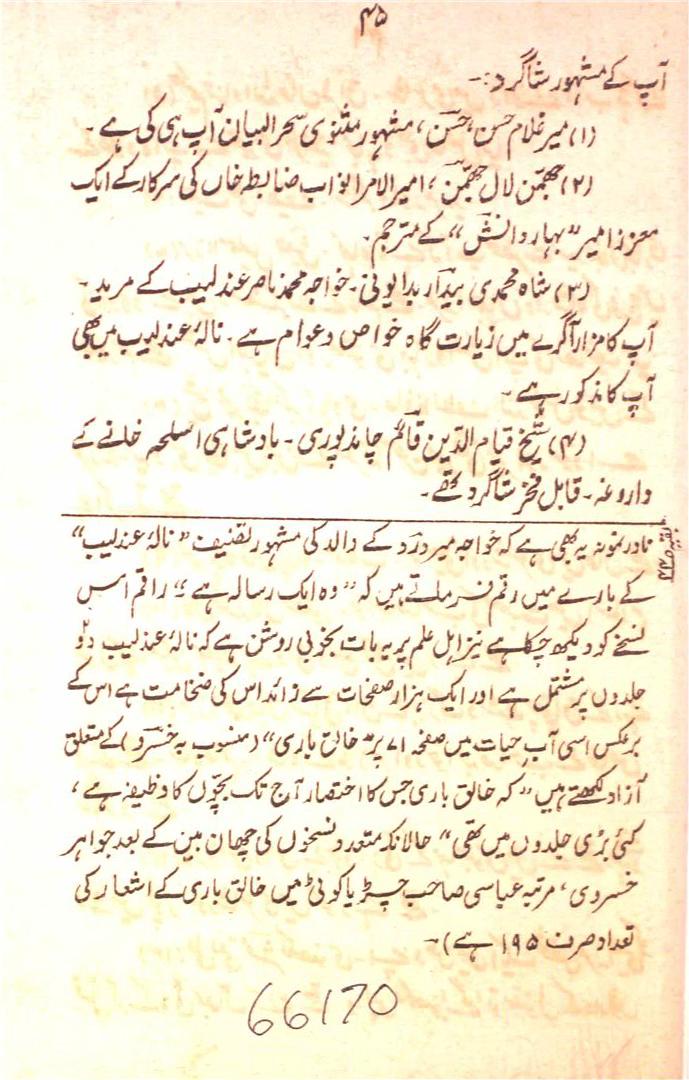 ۴۵
آپ کے مشہور شاگرد:۔
(۱) میر غلام حسن، حسن، مشہور مثنوی سحر البیان آپ ہی کی ہے۔
(۲) جھمّن لال جھمّن، امیر الامرا نواب ضابطہ خاں کی سرکار کے ایک
معزز امیر "بہار دانش" کے مترجم۔
(۳) شاہ محمدی بیدار بدایونی۔ خواجہ محمد ناصر عندلیب کے مرید۔
آپ کا مزار آگرے میں زیارت گاہ خواص و عوام ہے۔ نالۂ عندلیب میں بھی
آپ کا مذکور ہے۔
(۴) شیخ قیام الدین قائم چاند پوری۔ بادشاہی اسلحہ خانے کے
داروغہ۔ قابل فخر شاگرد تھے۔
بقیہ ص۴۴
نادر نمونہ یہ بھی ہے کہ خواجہ میر درد کے والد کی مشہور تصنیف "نالۂ عندلیب"
کے بارے میں رقم فرماتے ہیں کہ "وہ ایک رسالہ ہے" راقم اس
نسخے کو دیکھ چکا ہے نیز اہل علم پر یہ بات بخوبی روشن ہے کہ نالۂ عندلیب دو
جلدوں پر مشتمل ہے اور ایک ہزار صفحات سے زائد اس کی ضخامت ہے اس کے
برعکس اسی آب حیات میں صفحہ ۷۱ پر "خالق باری" (منسوب بہ خسرو) کے متعلق
آزاد لکھتے ہیں "کہ خالق باری جس کا اختصار آج تک بچّوں کا وظیفہ ہے،
کئی بڑی جلدوں میں تھی" حالانکہ متعدد نسخوں کی چھان بین کے بعد جواہر
خسروی، مرتبہ عباسی صاحب چڑیاکوٹی میں خالق باری کے اشعار کی
تعداد صرف ۱۹۵ ہے)۔
66170